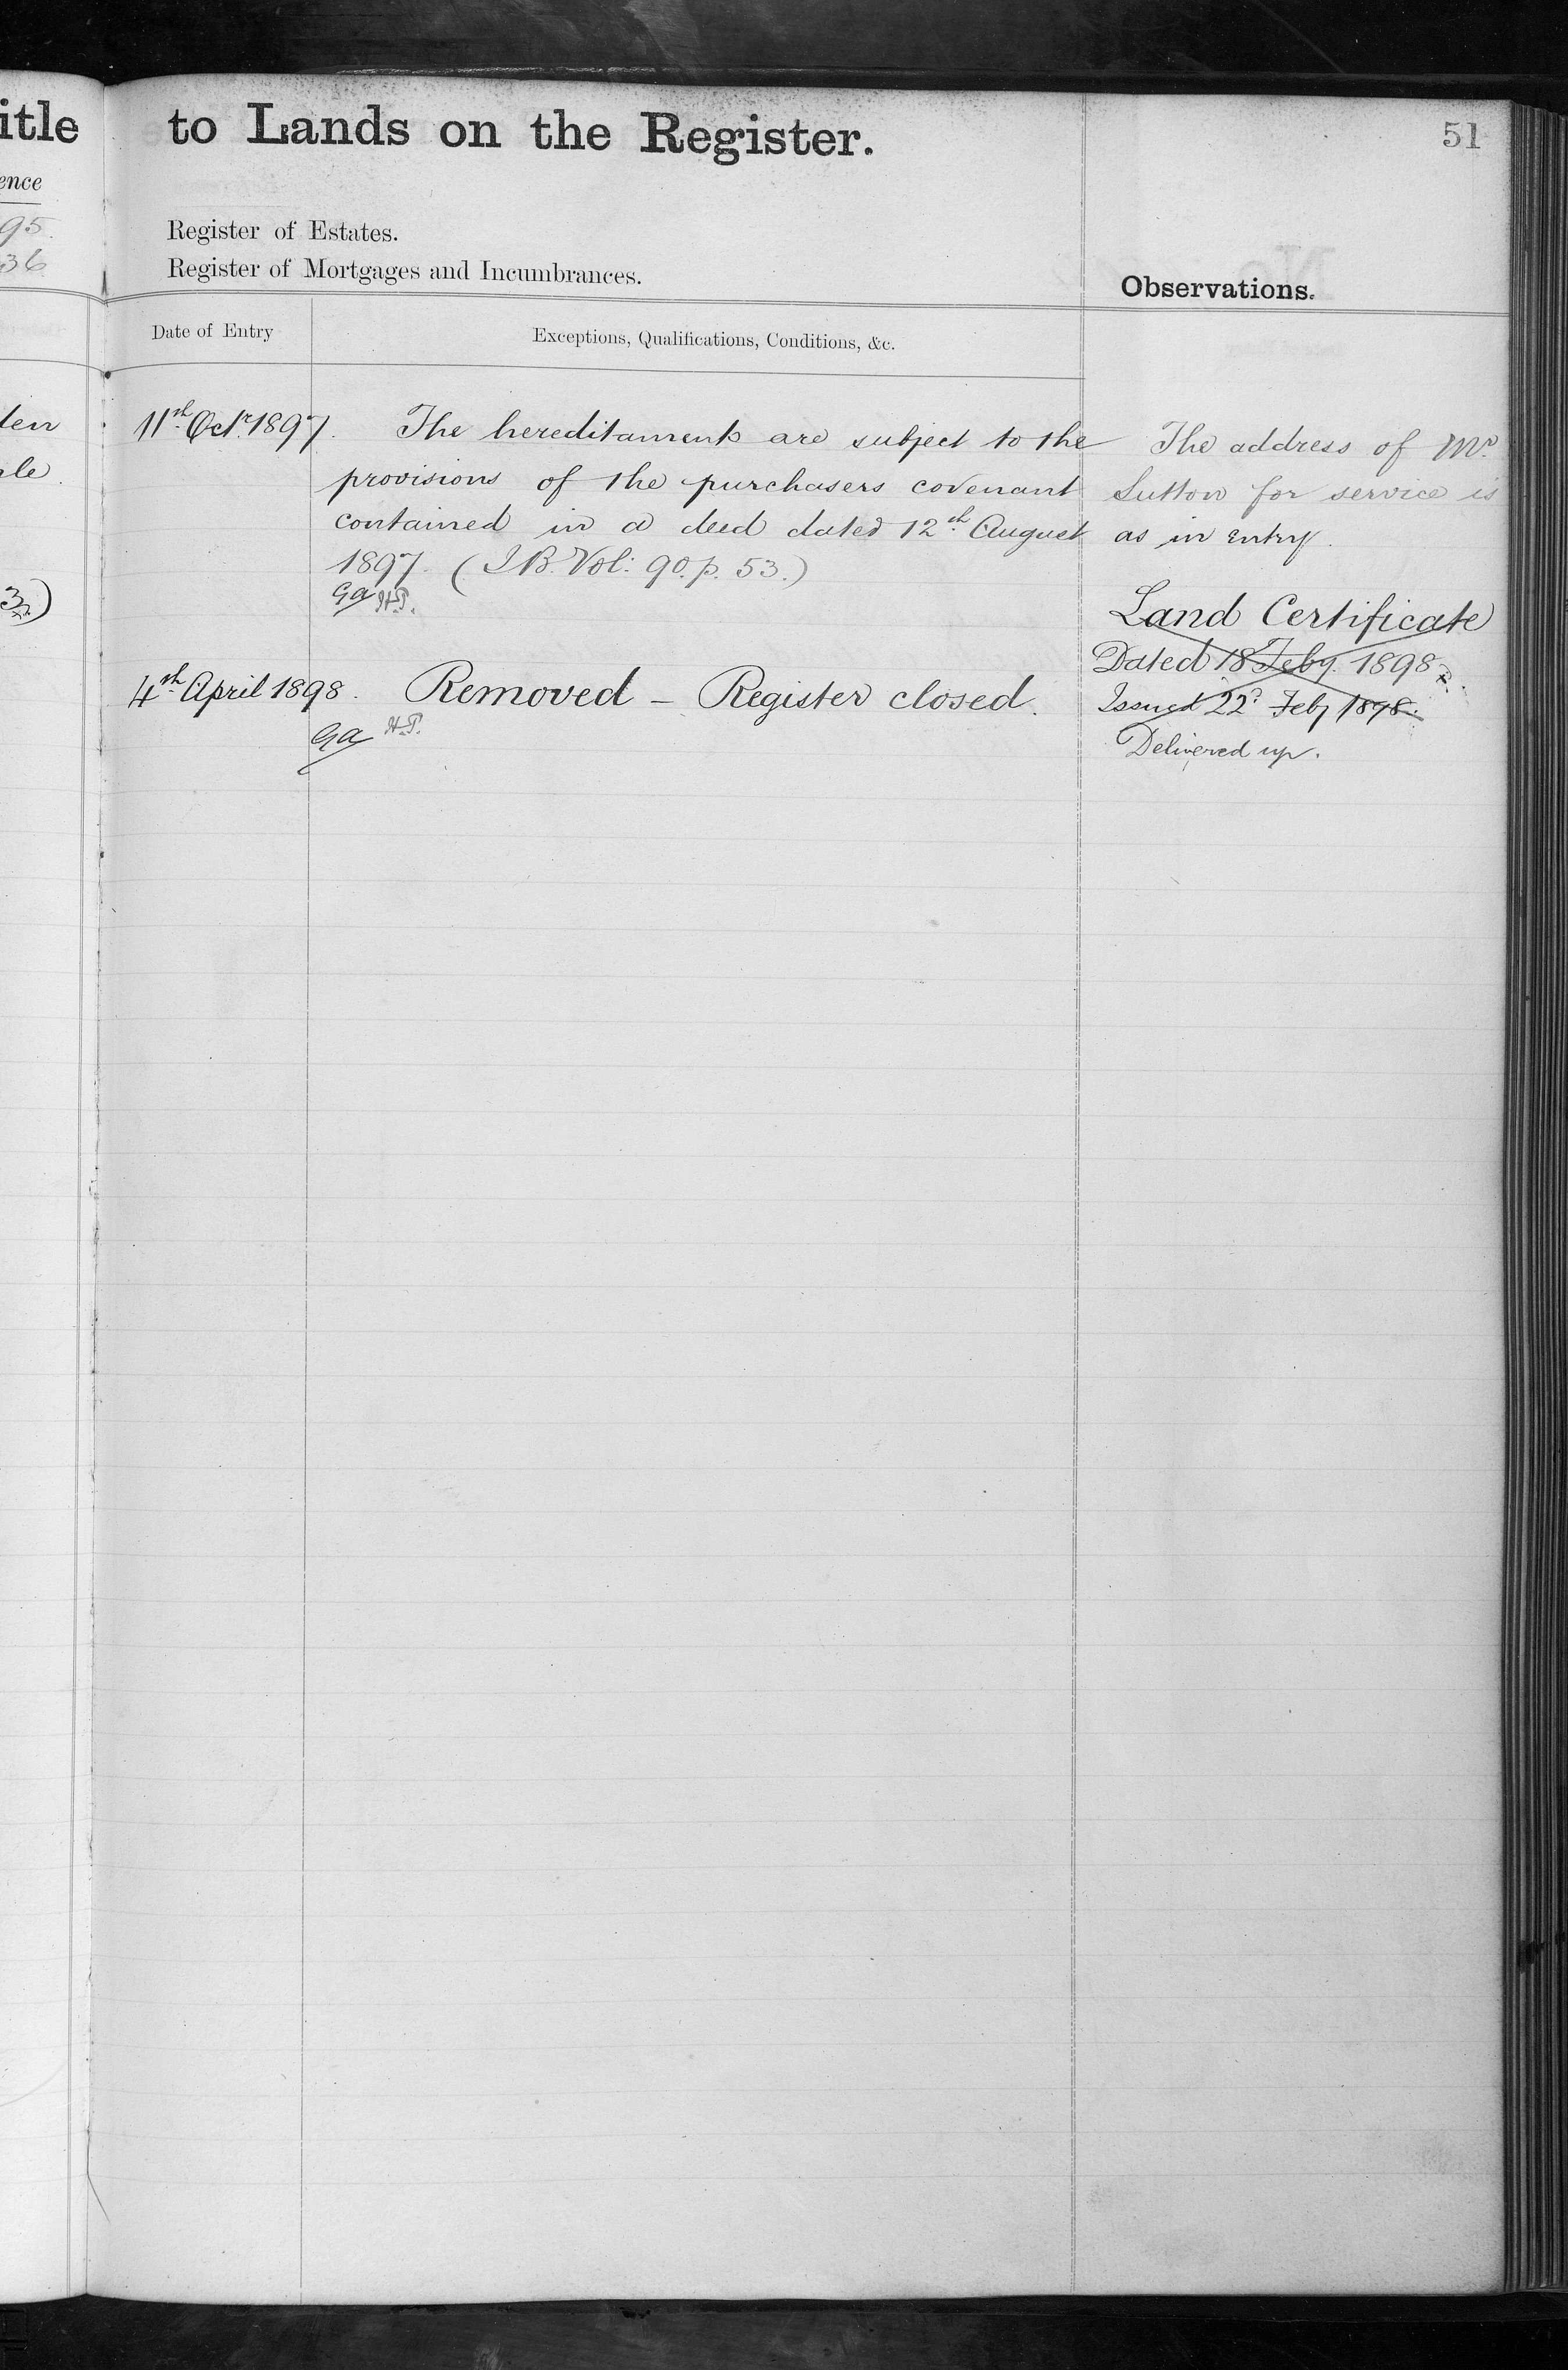 itle
ence
95.
36
den
ale.
to Lands on the Register.
51
Register of Estates.
Register of Mortgages and Incumbrances.
Observations.
Date of Entry
Exceptions, Qualifications, Conditions, &c.
11th Octr. 1897.
The hereditaments are subject to the
provisions of the purchasers covenant
contained in a deed dated 12th August
1897. (I.B. Vol: 90. p. 53.)
Ga H.P.
4th April 1898.
Removed — Register closed.
Ga H.P.
The address of Mr.
Sutton for service is
as in entry.
Land Certificate
Dated 18 Feby. 1898
Issued 22d Feby 1898.
Delivered up.